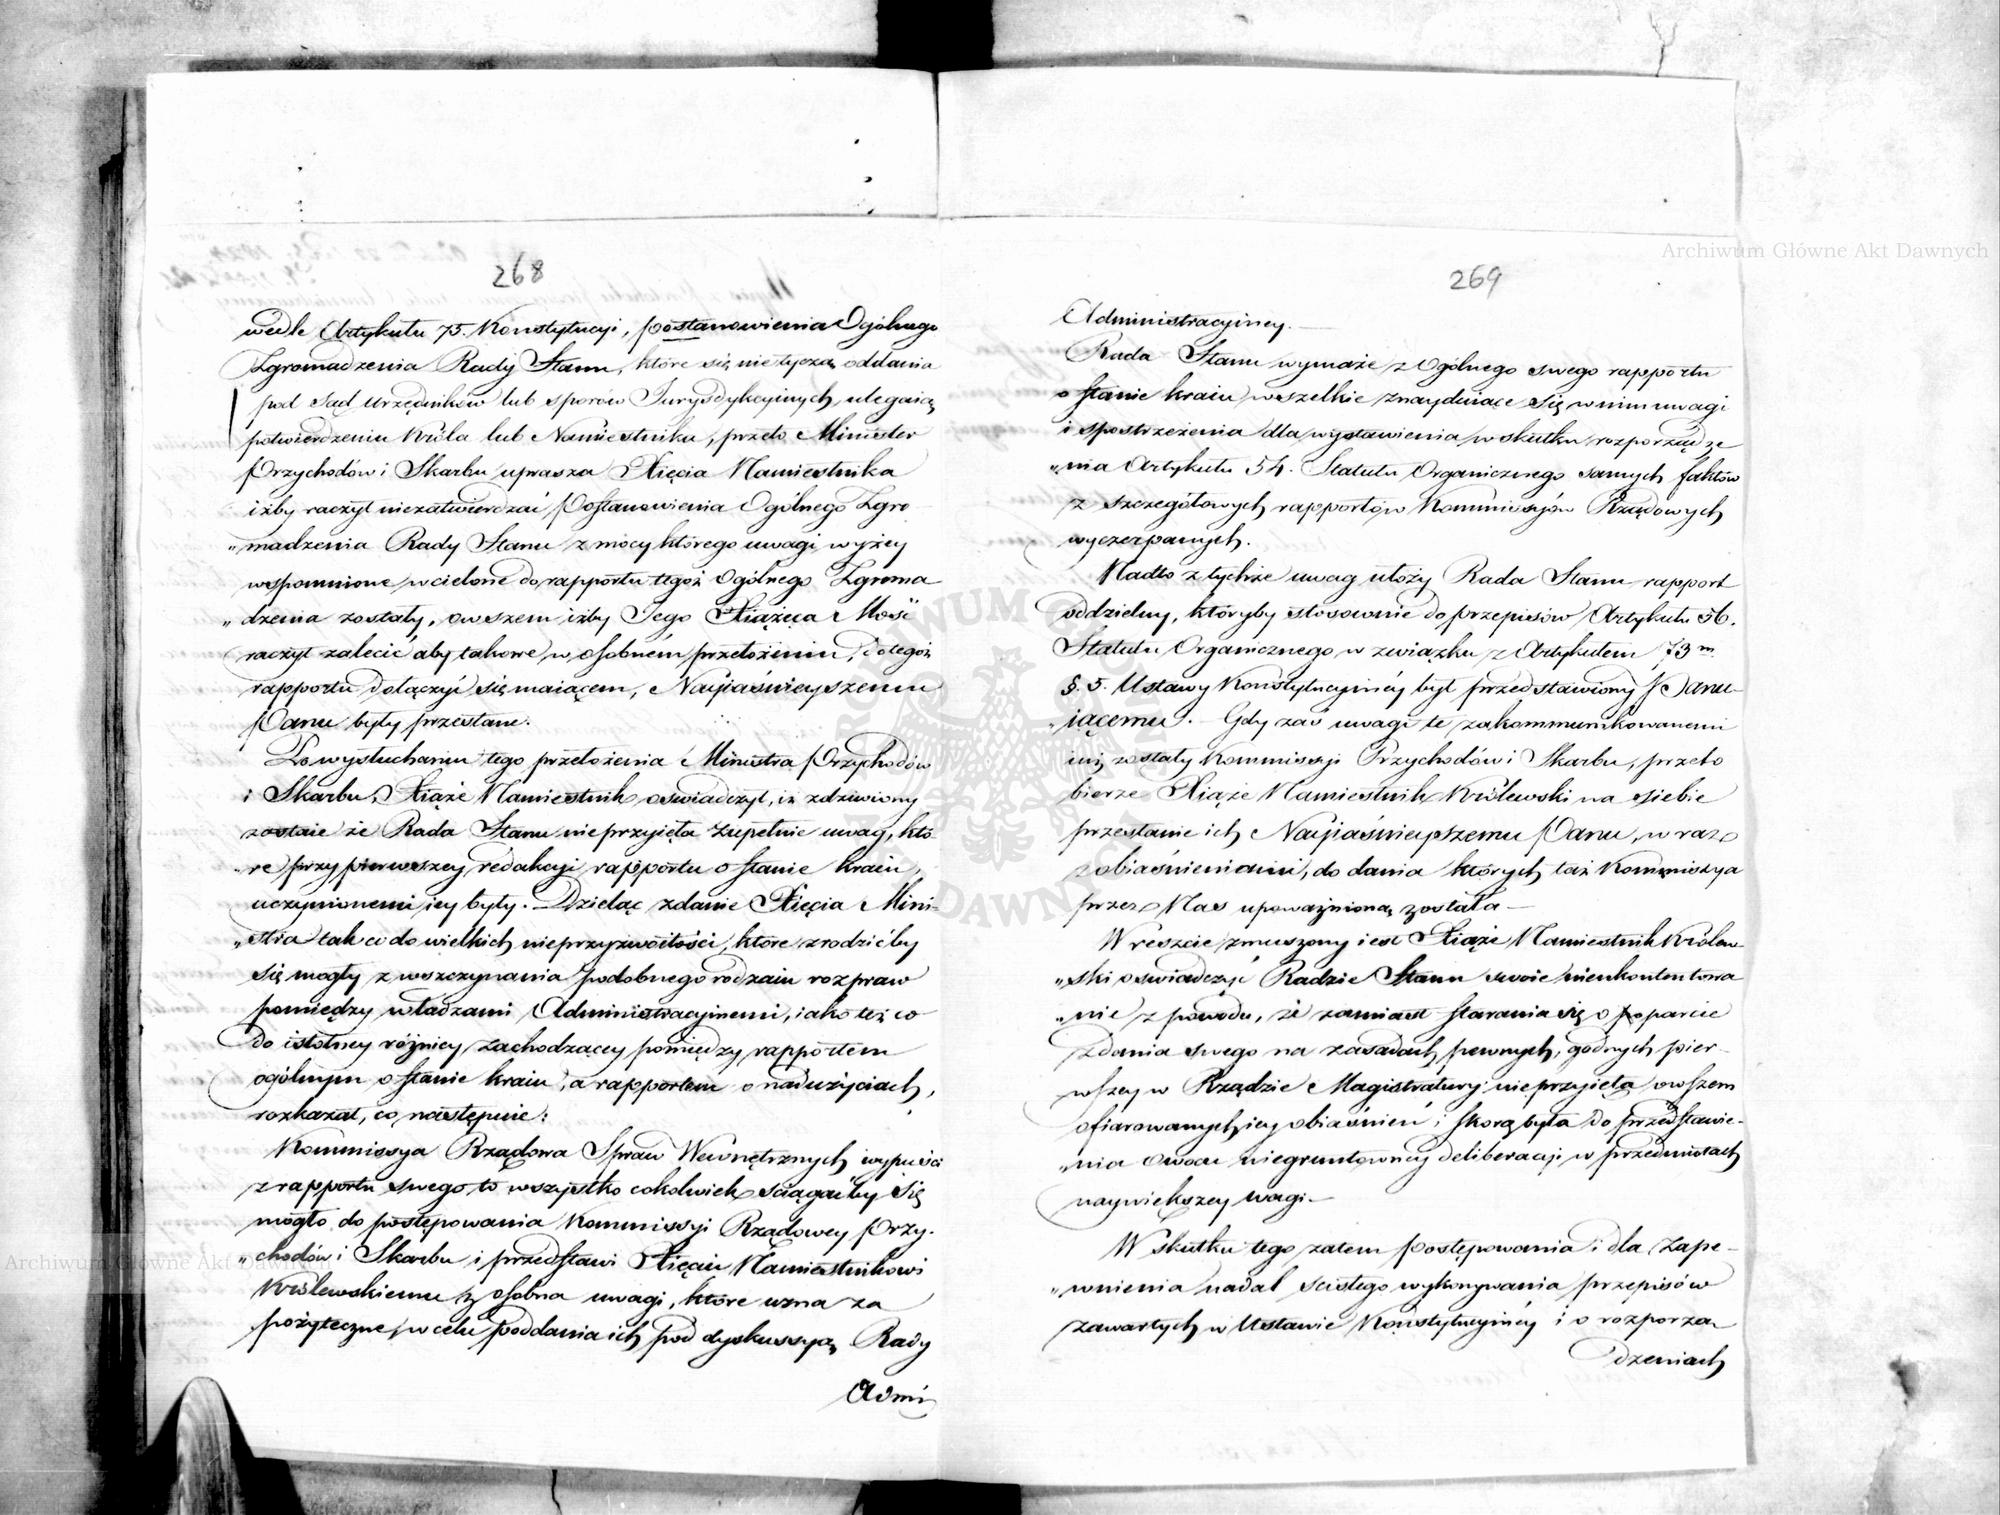 268
wedle Artykułu 75. Konstytucyi, postanowienia Ogólnego
Zgromadzenia Rady Stanu, które się nie tyczą oddania
pod Sąd Urzędników lub sporów Jurysdykcyinych, ulegaią
potwierdzeniu Króla lub Namiestnika, przeto Minister
Przychodów i Skarbu uprasza Xięcia Namiestnika
iżby raczył niezatwierdzać Postanowienia Ogólnego Zgro
„madzenia Rady Stanu z mocy którego uwagi wyżey
wspomnione wcielone do rapportu tegoż Ogólnego Zgroma
„dzenia zostały, owszem iżby Jego Xiążęca Mość
raczył zalecić aby takowe, w osobném przełożeniu, do tegoż
rapportu dołączyć się maiącem, Nayiaśnieyszemu
Panu były przesłane.
Po wysłuchaniu tego przełożenia Ministra Przychodów
i Skarbu, Xiąże Namiestnik oświadczył, iż zdziwiony
zostaie że Rada Stanu nieprzyięła zupełnie uwag, któ-
„re przy pierwszey redakcyi rapportu o stanie kraiu,
uczynionemi iey były. Dzieląc zdanie Xięcia Mini-
„stra tak co do wielkich nieprzyzwoitości, które zrodzić by
się mogły z wszczynania podobnego rodzaiu rozpraw
pomiędzy władzami Administracyinemi, iako też co
do istotney różnicy zachodzącey pomiędzy rapportem
ogólnym o stanie kraiu, a rapportem o nadużyciach,
rozkazał, co następuie:
Kommissya Rządowa Spraw Wewnętrznych wypuści
z rapportu swego to wszystko cokolwiek ściągać by się
mogło do postępowania Kommissyi Rządowey Przy-
„chodów i Skarbu i przedstawi Xięciu Namiestnikowi
Królewskiemu z osobna uwagi, które uzna za
pożyteczne, w celu poddania ich pod dyskussyą Rady
Admi
269
Administracyiney.
Rada Stanu wymaże z Ogólnego swego rapportu
o stanie kraiu wszelkie znayduiące się w nim uwagi
i spostrzeżenia dla wystawienia w skutku rozporządze
„nia Artykułu 54. Statutu Organicznego samych faktów
z szczegółowych rapportów Kommissyów Rządowych
wyczerpanych.
Nadto z tychże uwag ułoży Rada Stanu rapport
oddzielny, któryby stosownie do przepisów Artykułu 56.
Statutu Organicznego w związku z Artykułem 73m
§. 5. Ustawy Konstytucyiney był przedstawiony Panu-
„iącemu. Gdy zaś uwagi te zakommunikowanemi
iuż zostały Kommissyi Przychodów i Skarbu, przeto
bierze Xiąże Namiestnik Królewski na siebie
przesłanie ich Nayiaśnieyszemu Panu, w raz
z obiaśnieniami, do dania których taż Kommissya
przez Nas upoważnioną została
Wreszcie zmuszony iest Xiąże Namiestnik Królew-
„ski oświadczyć Radzie Stanu swoie nieukontentowa
„nie z powodu, że zamiast starania się o poparcie
zdania swego na zasadach pewnych, godnych pier-
wszey w Rządzie Magistratury nieprzyięła owszem
ofiarowanych iey obiaśnień i skorą była do przedstawie-
„nia owocu niegruntowney deliberacyi w przedmiotach
naywiększey wagi.
W skutku tego zatem postępowania i dla zape-
„wnienia nadal ścisłego wykonywania przepisów
zawartych w Ustawie Konstytucyiney i o rozporzą
dzeniach
Archiwum Główne Akt Dawnych
Archiwum Główne Akt Dawnych
ARCHIWUM GŁÓWNE AKT DAWNYCH